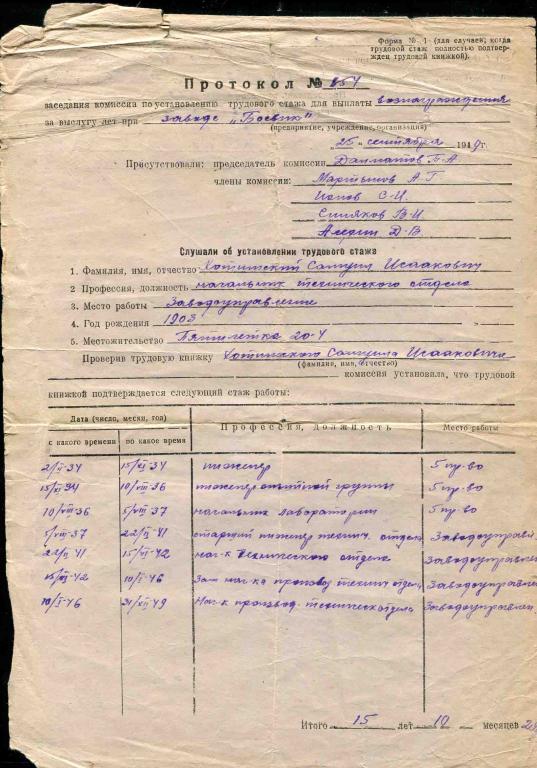 Форма № 1 (для случаев, когда
трудовой стаж полностью подтвер-
жден трудовой книжкой).
Протокол № 254
заседания комиссии по установлению трудового стажа для выплаты вознаграждения
за выслугу лет при заводе „Боевик“
(предприятие, учреждение, организация)
„25“ сентября 1949 г.
Присутствовали: председатель комиссии Далматов П-А
члены комиссии: Мартынов А. Г
С-И.
Синяков В-И.
Д-В.
Слушали об установлении трудового стажа
1. Фамилия, имя, отчество Хотимский Самуил Исаакович
2 Профессия, должность начальник технического отдела
3. Место работы Заводоуправление
4. Год рождения 1903
5. Местожительство Пятилетка 20-4
Проверив трудовую книжку Хотимского Самуила Исааковича
(фамилия, имя, отчество)
комиссия установила, что трудовой
книжкой подтверждается следующий стаж работы:
Дата (число, месяц, год) Профессия, должность Место работы
с какого времени по какое время
2/II-34 15/XI-34 инженер 5 пр-во
15/XI-34 10/VIII-36 инженер группы 5 пр-во
10/VIII-36 5/VIII-37 начальник лаборатории 5 пр-во
5/VIII-37 22/II-41 старший инженер технич. отдела Заводоуправл.
22/II-41 15/VI-42 нач-к технического отдела Заводоуправлен
15/VI-42 10/I-46 Зам нач-ка производ технич отдела Заводоуправлен
10/I-46 31/VII-49 Нач-к производ. технич отдела Заводоуправлен.
Итого 15 лет 10 месяцев